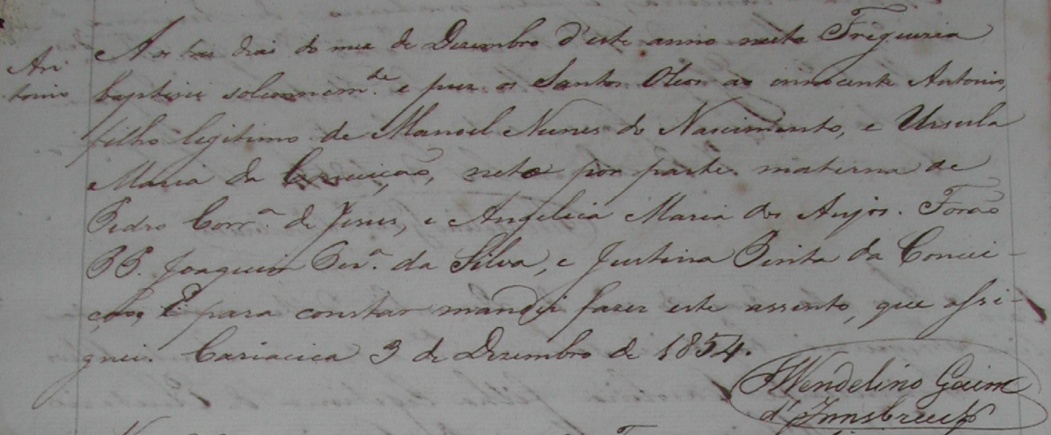 An
tonio
Aos tres dias do mez de Dezembro d'este anno nesta Freguezia
baptizei solemnem.te e puz os Santos Oleos ao innocente Antonio,
filho legitimo de Manoel Nunes do Nascimento, e Ursula
Maria da Conceição, neto por parte materna de
Pedro Corr.a de Jesus, e Angelica Maria dos Anjos. Forão
PP. Joaquim Per.a da Silva, e Justina Pinta da Concei-
ção, E para constar mandei fazer este assento, que assi-
gnei. Cariacica 3 de Dezembro de 1854.
Fr Wendelino
d'Innsbruck